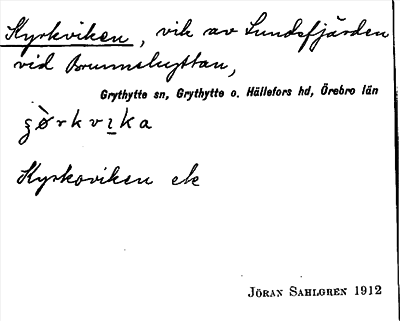 Kyrkviken, vik av Sundsfjärden
vid Brunnshyttan,
Grythytte sn, Grythytte o. Hällefors hd, Örebro län
Kyrkoviken ek
JÖRAN SAHLGREN 1912